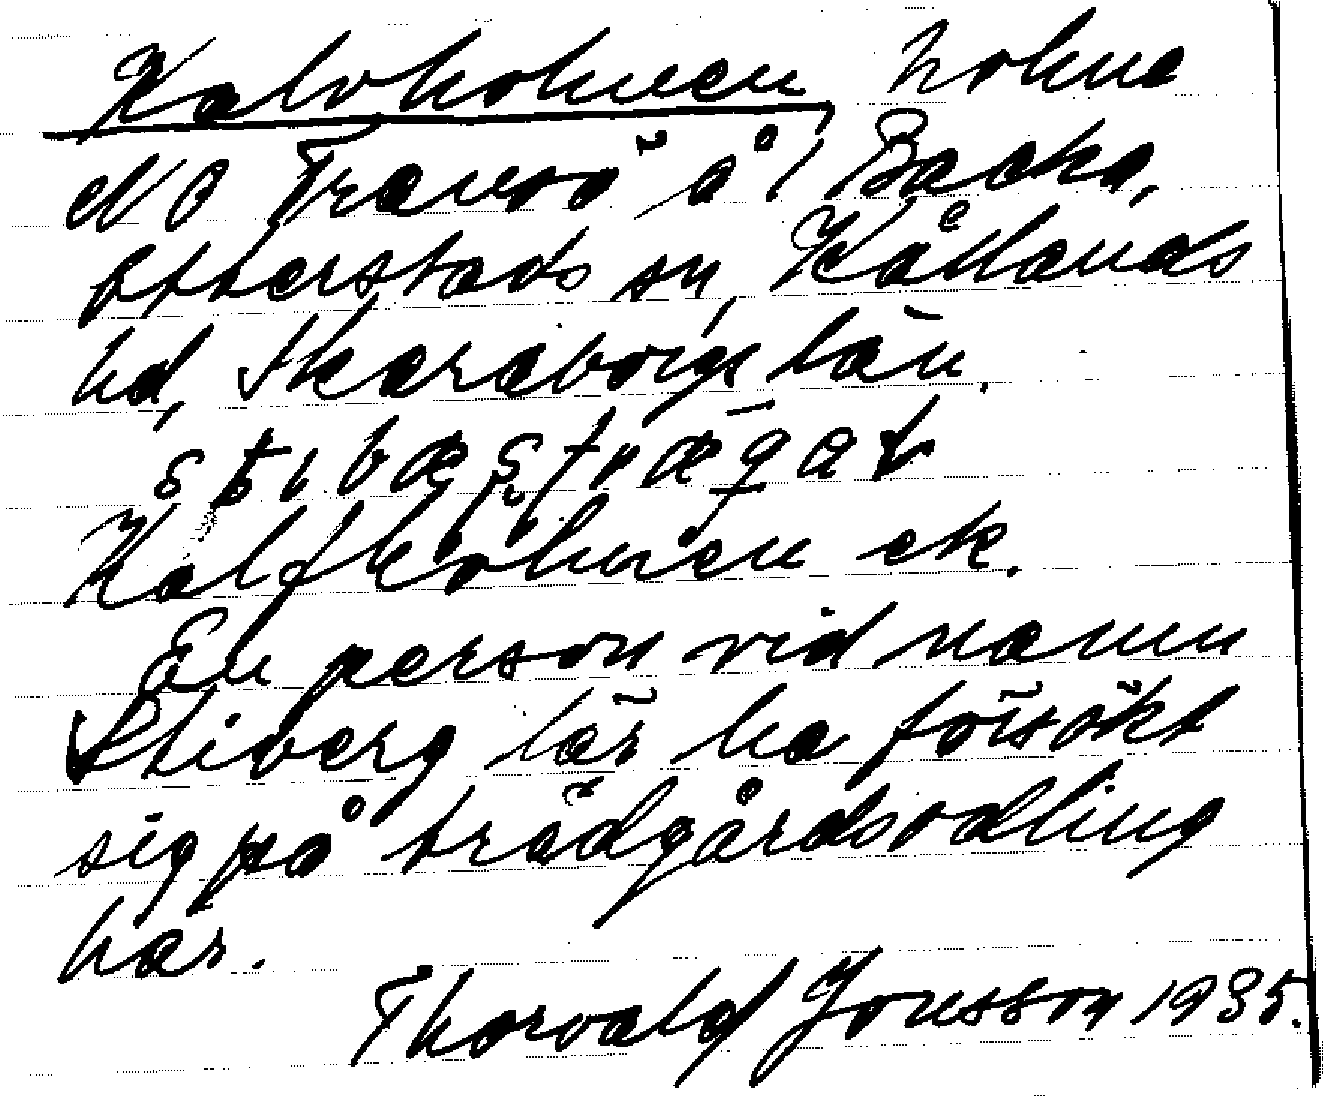 Kalvholmen, holme
NO Traneö å 1 Backa,
Otterstads sn, Kållands
hd, Skaraborgs län.
stibæstrægat
Kalfholmen ek.
En person vid namn
Stiberg lär ha försökt
sig på trädgårdsodling
här.
Thorvald Jonsson 1935.